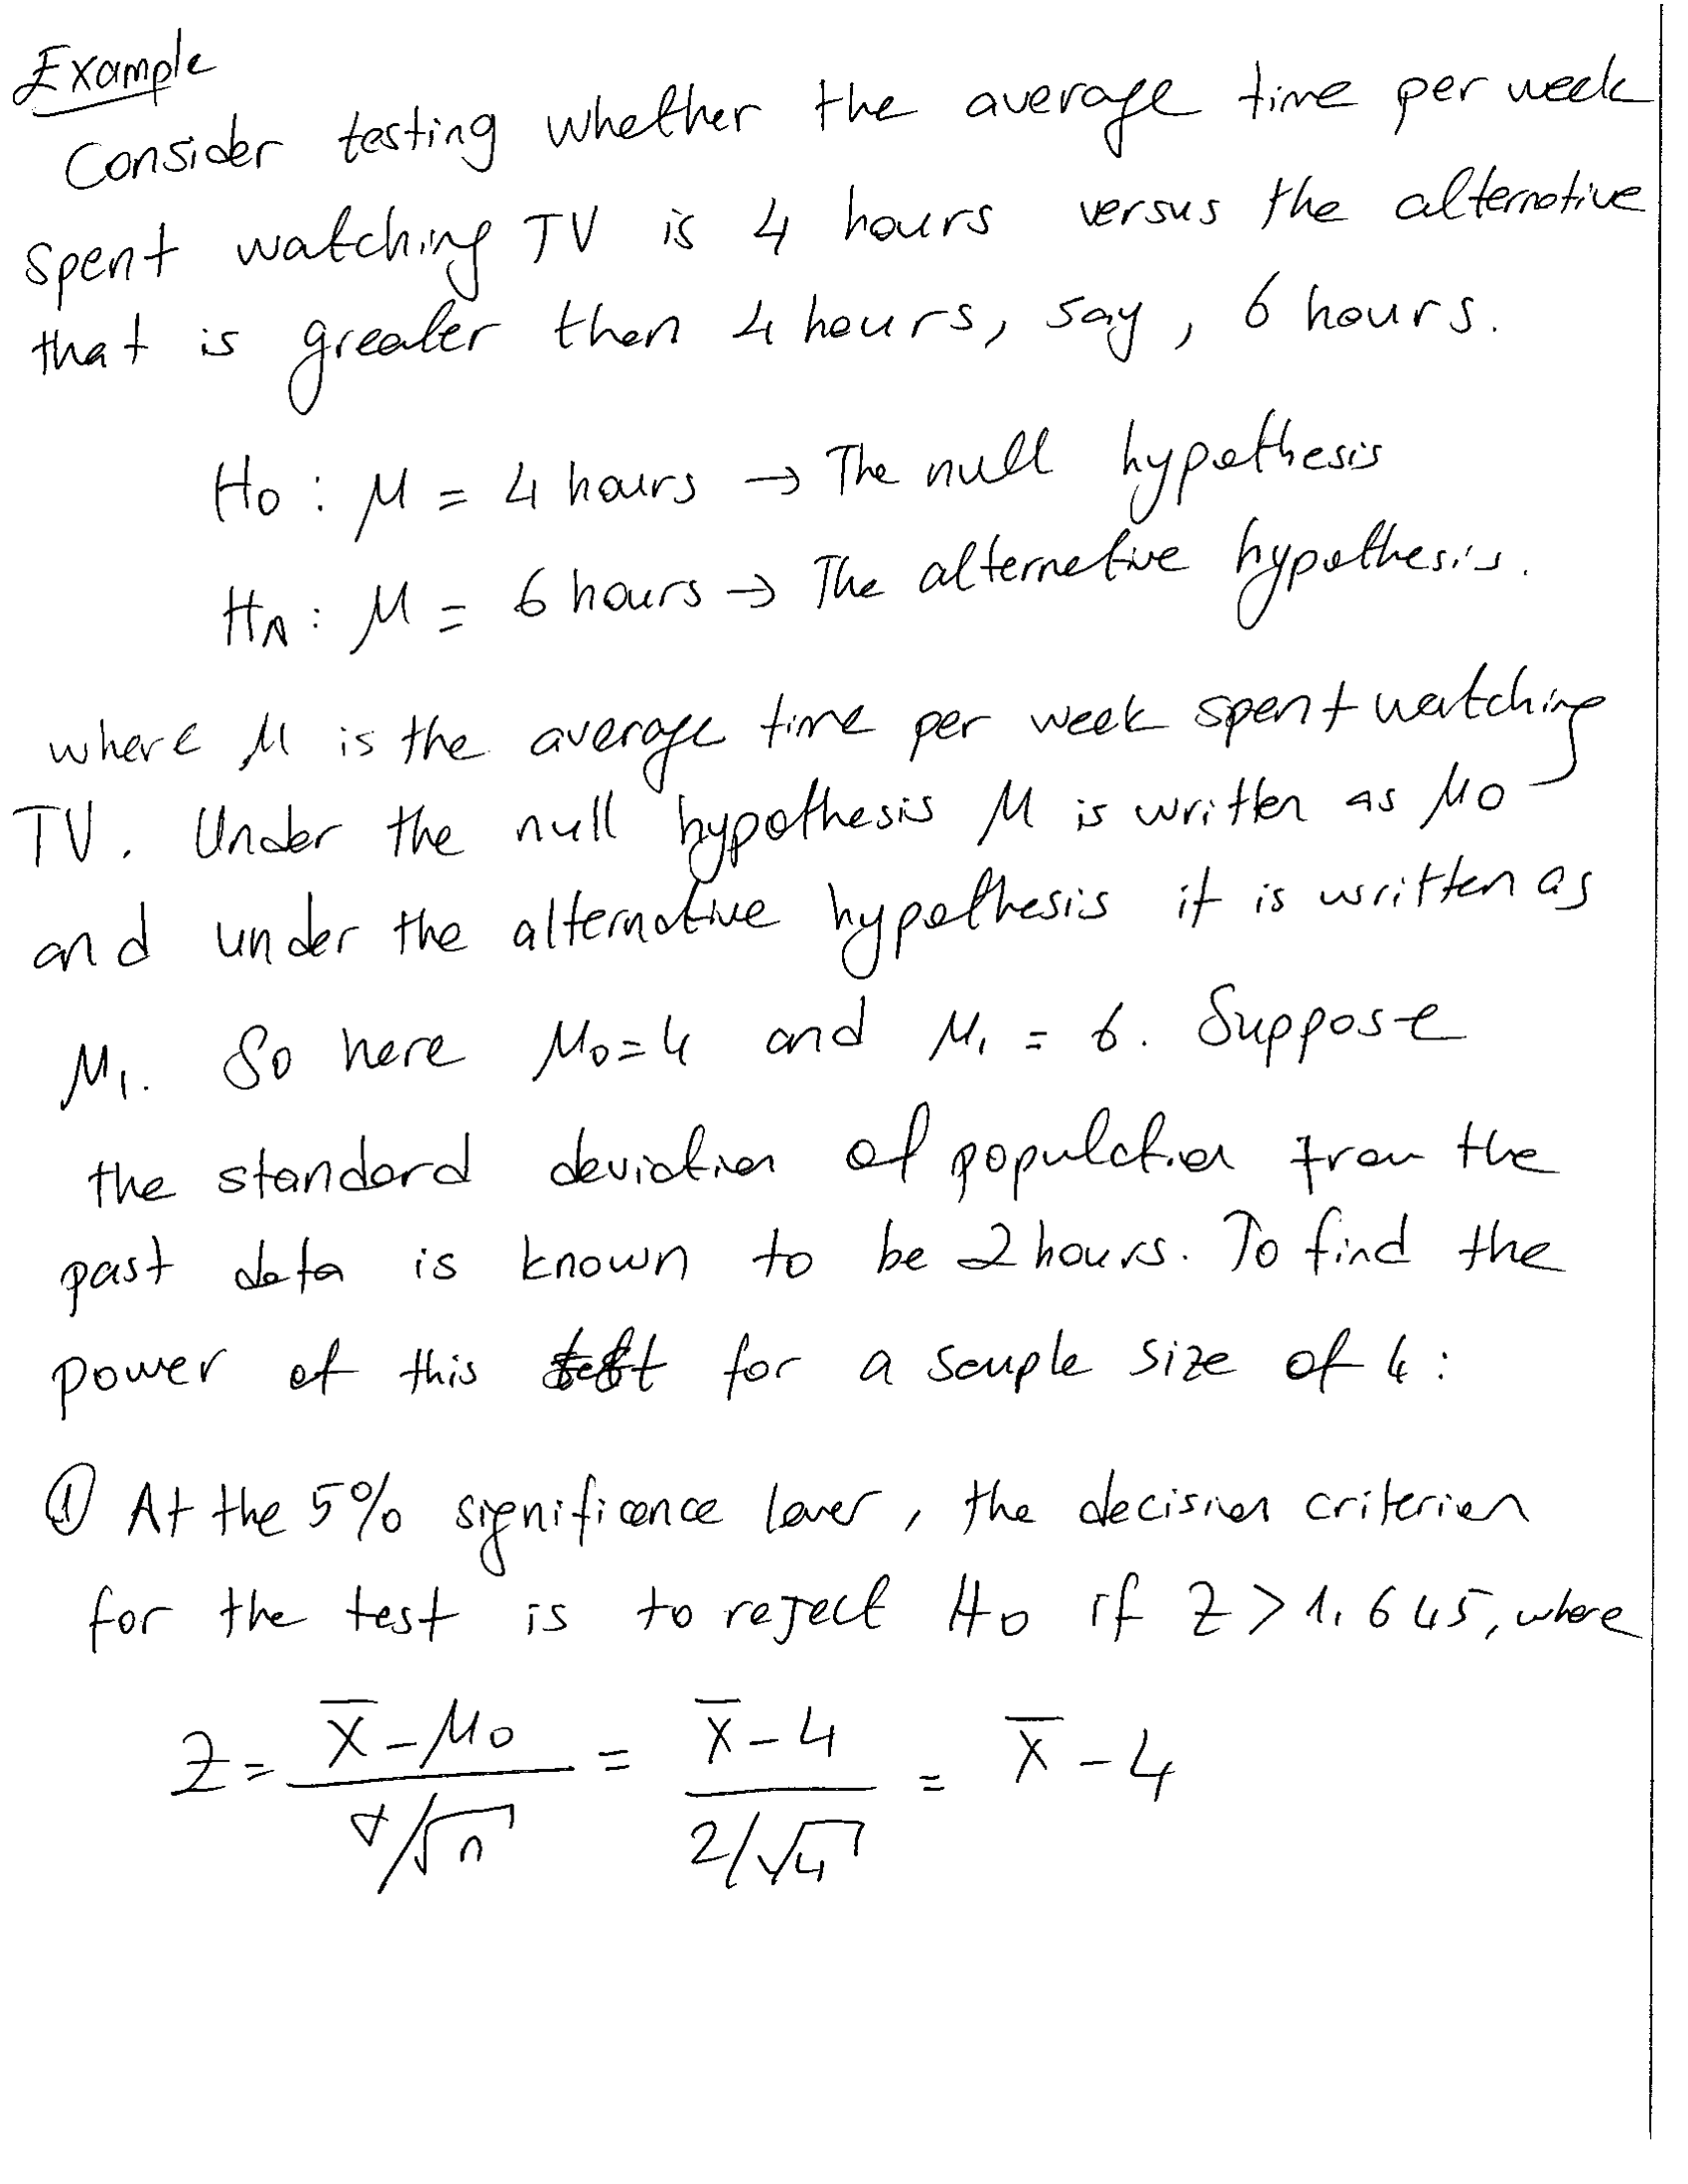 Example
Consider testing whether the average time per week
spent watching TV is 4 hours versus the alternative
that is greater then 4 hours, say, 6 hours.
H0 : μ = 4 hours → The null hypothesis
HA : μ = 6 hours → The alternetive hypothesis.
where μ is the average time per week spent watching
TV. Under the null hypothesis μ is written as μ0
and under the alternative hypothesis it is written as
μ1. So here μ0=4 and μ1 = 6. Suppose
the standard deviation of population from the
past data is known to be 2 hours. To find the
power of this test for a sample size of 4:
① At the 5% significance lever, the decision criterion
for the test is to reject H0 if Z > 1.645, where
Z = (x̄ - μ0) / (σ/√n) = (x̄ - 4) / (2/√4) = x̄ - 4